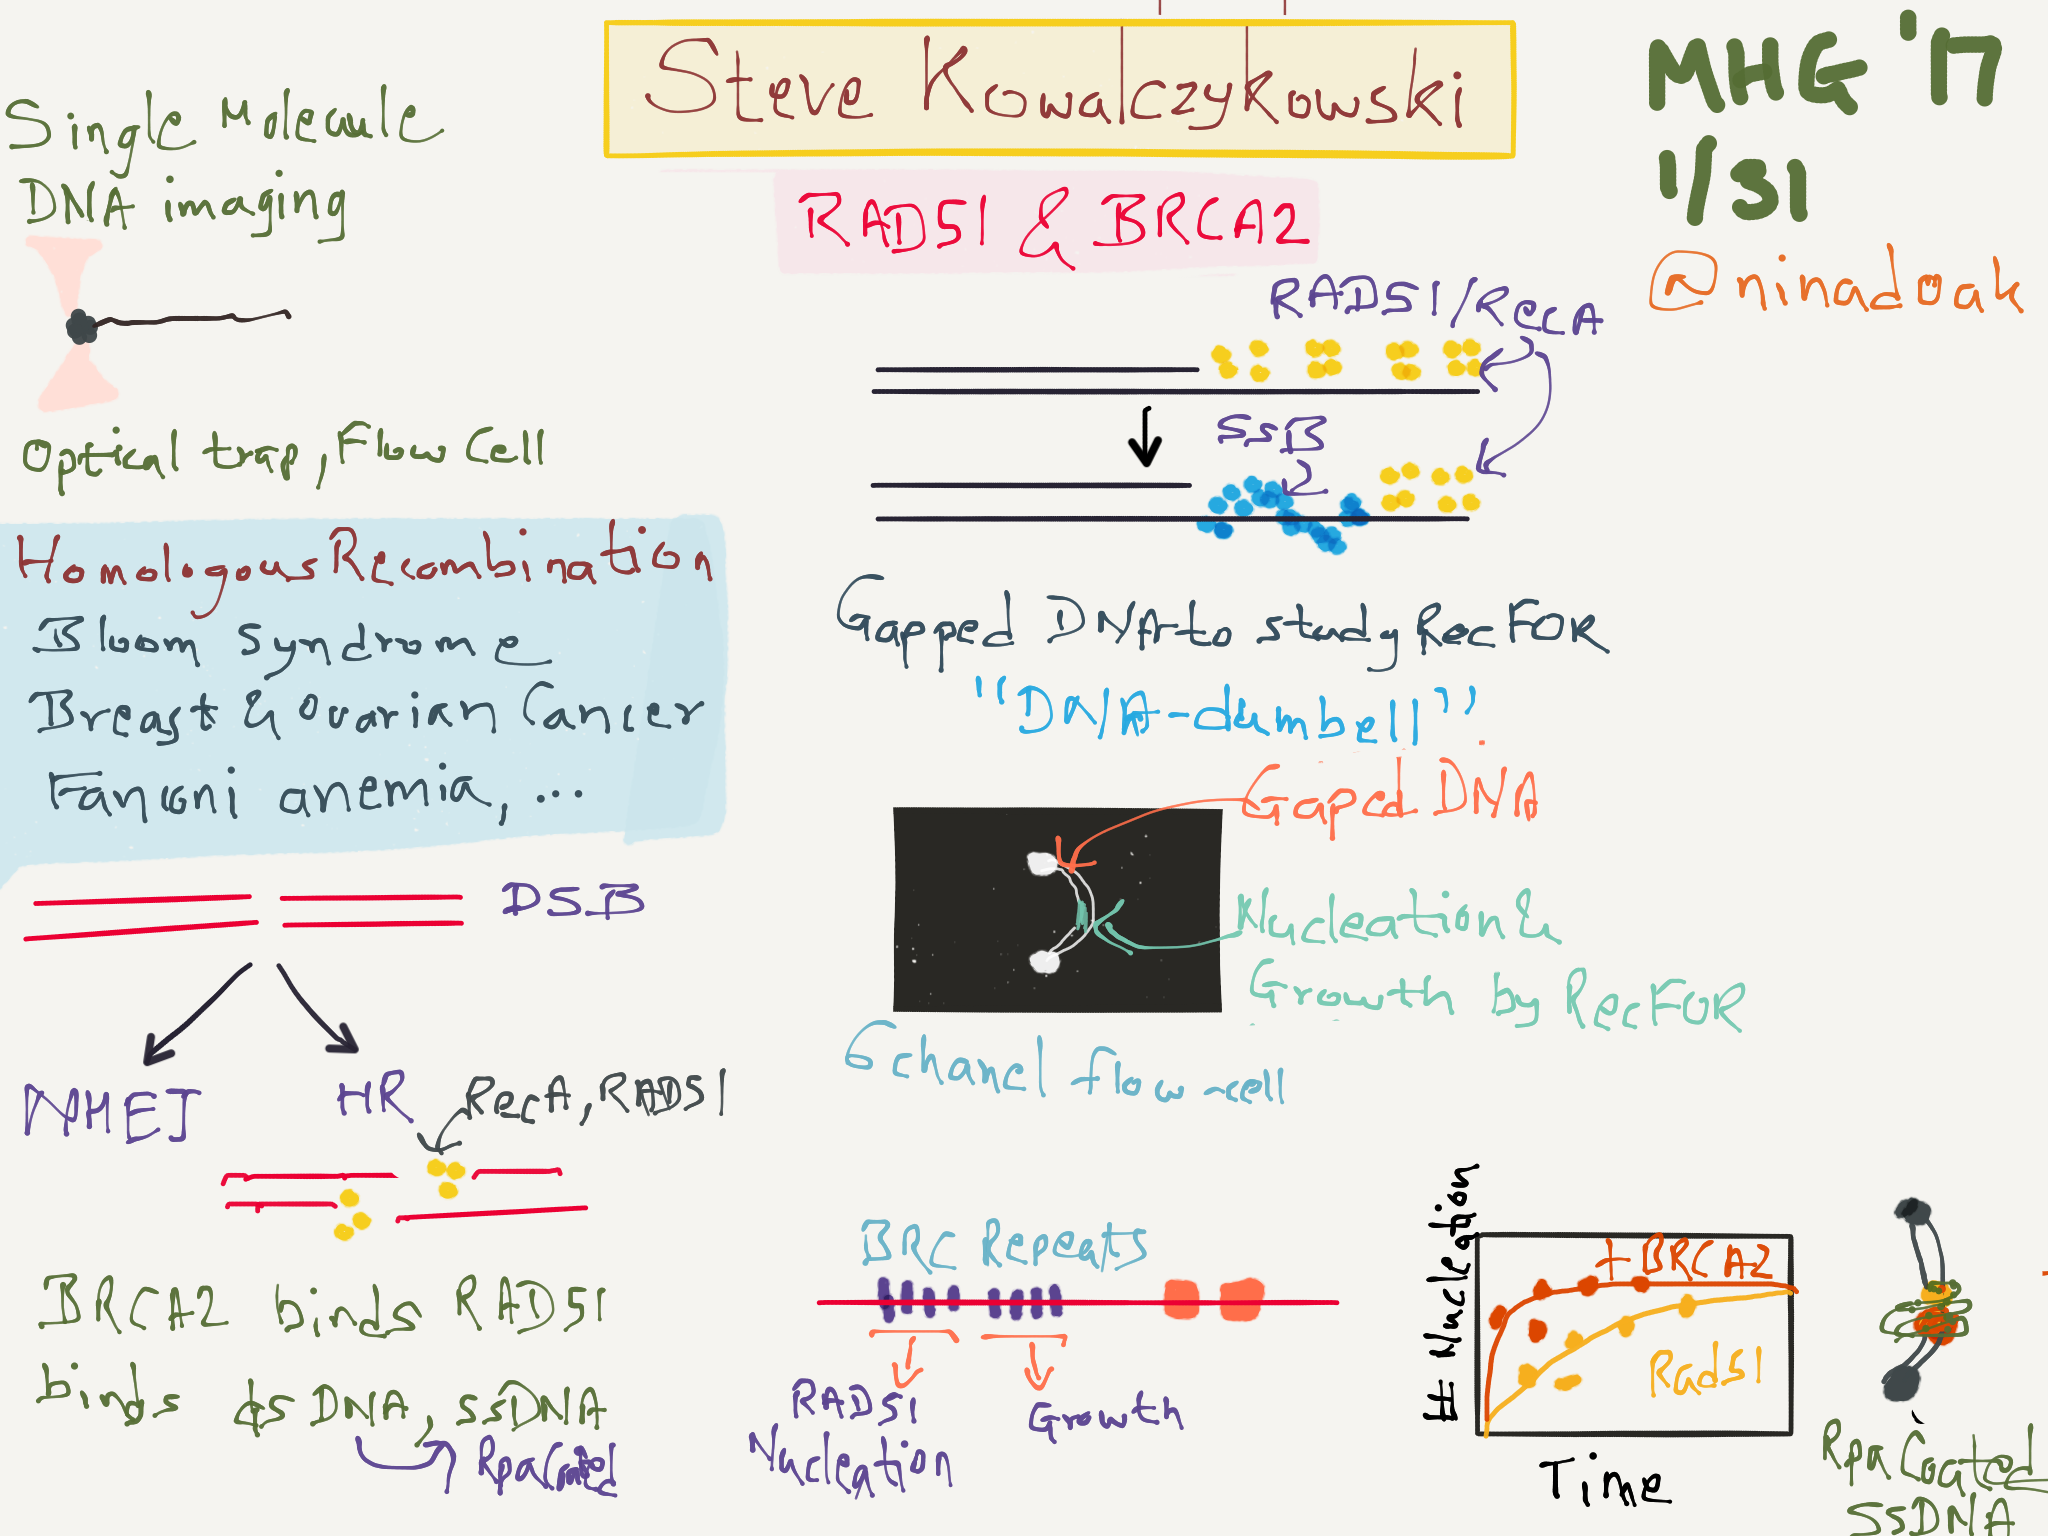 Steve Kowalczykowski
MHG '17
1/31
@ninadoak
RAD51 & BRCA2
Single Molecule
DNA imaging
Optical trap, Flow Cell
Homologous Recombination
Bloom Syndrome
Breast & Ovarian Cancer
Fanconi anemia, ...
DSB
NHEJ
HR
RecA, RAD51
BRCA2 binds RAD51
binds dsDNA, ssDNA
Rpa Coated
RAD51/RecA
SSB
Gapped DNA to study RecFOR
"DNA-dumbell"
Gaped DNA
Nucleation &
Growth by RecFOR
6 chanel flow-cell
BRC Repeats
RAD51
Nucleation
Growth
# Nucleation
+BRCA2
Rad51
Time
Rpa Coated
SSDNA